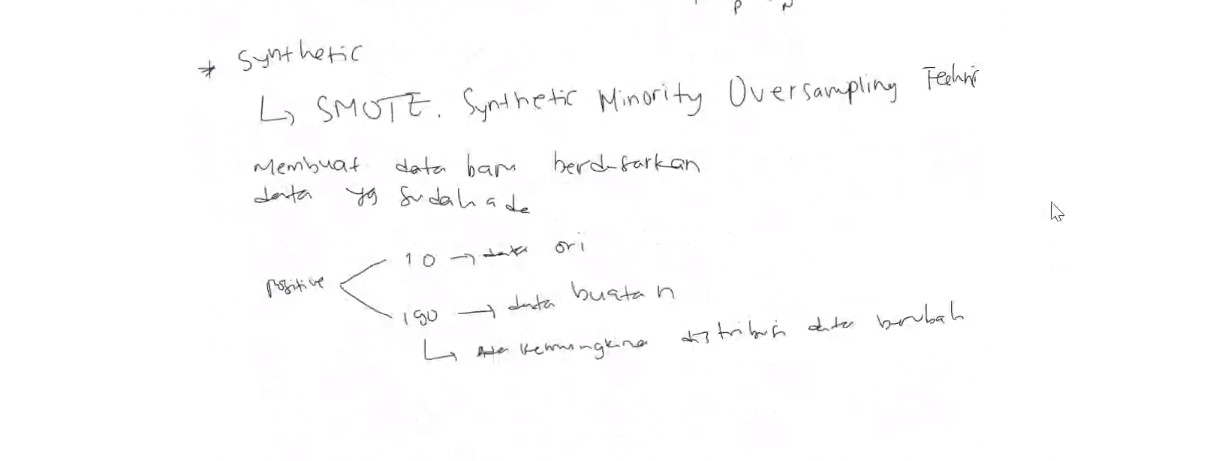 P N
* Synthetic
↳ SMOTE. Synthetic Minority Oversampling Technic
Membuat data baru berdasarkan
data yg sudah ada
positive
10 → data ori
190 → data buatan
↳ Ada kemungkinan distribusi data berubah